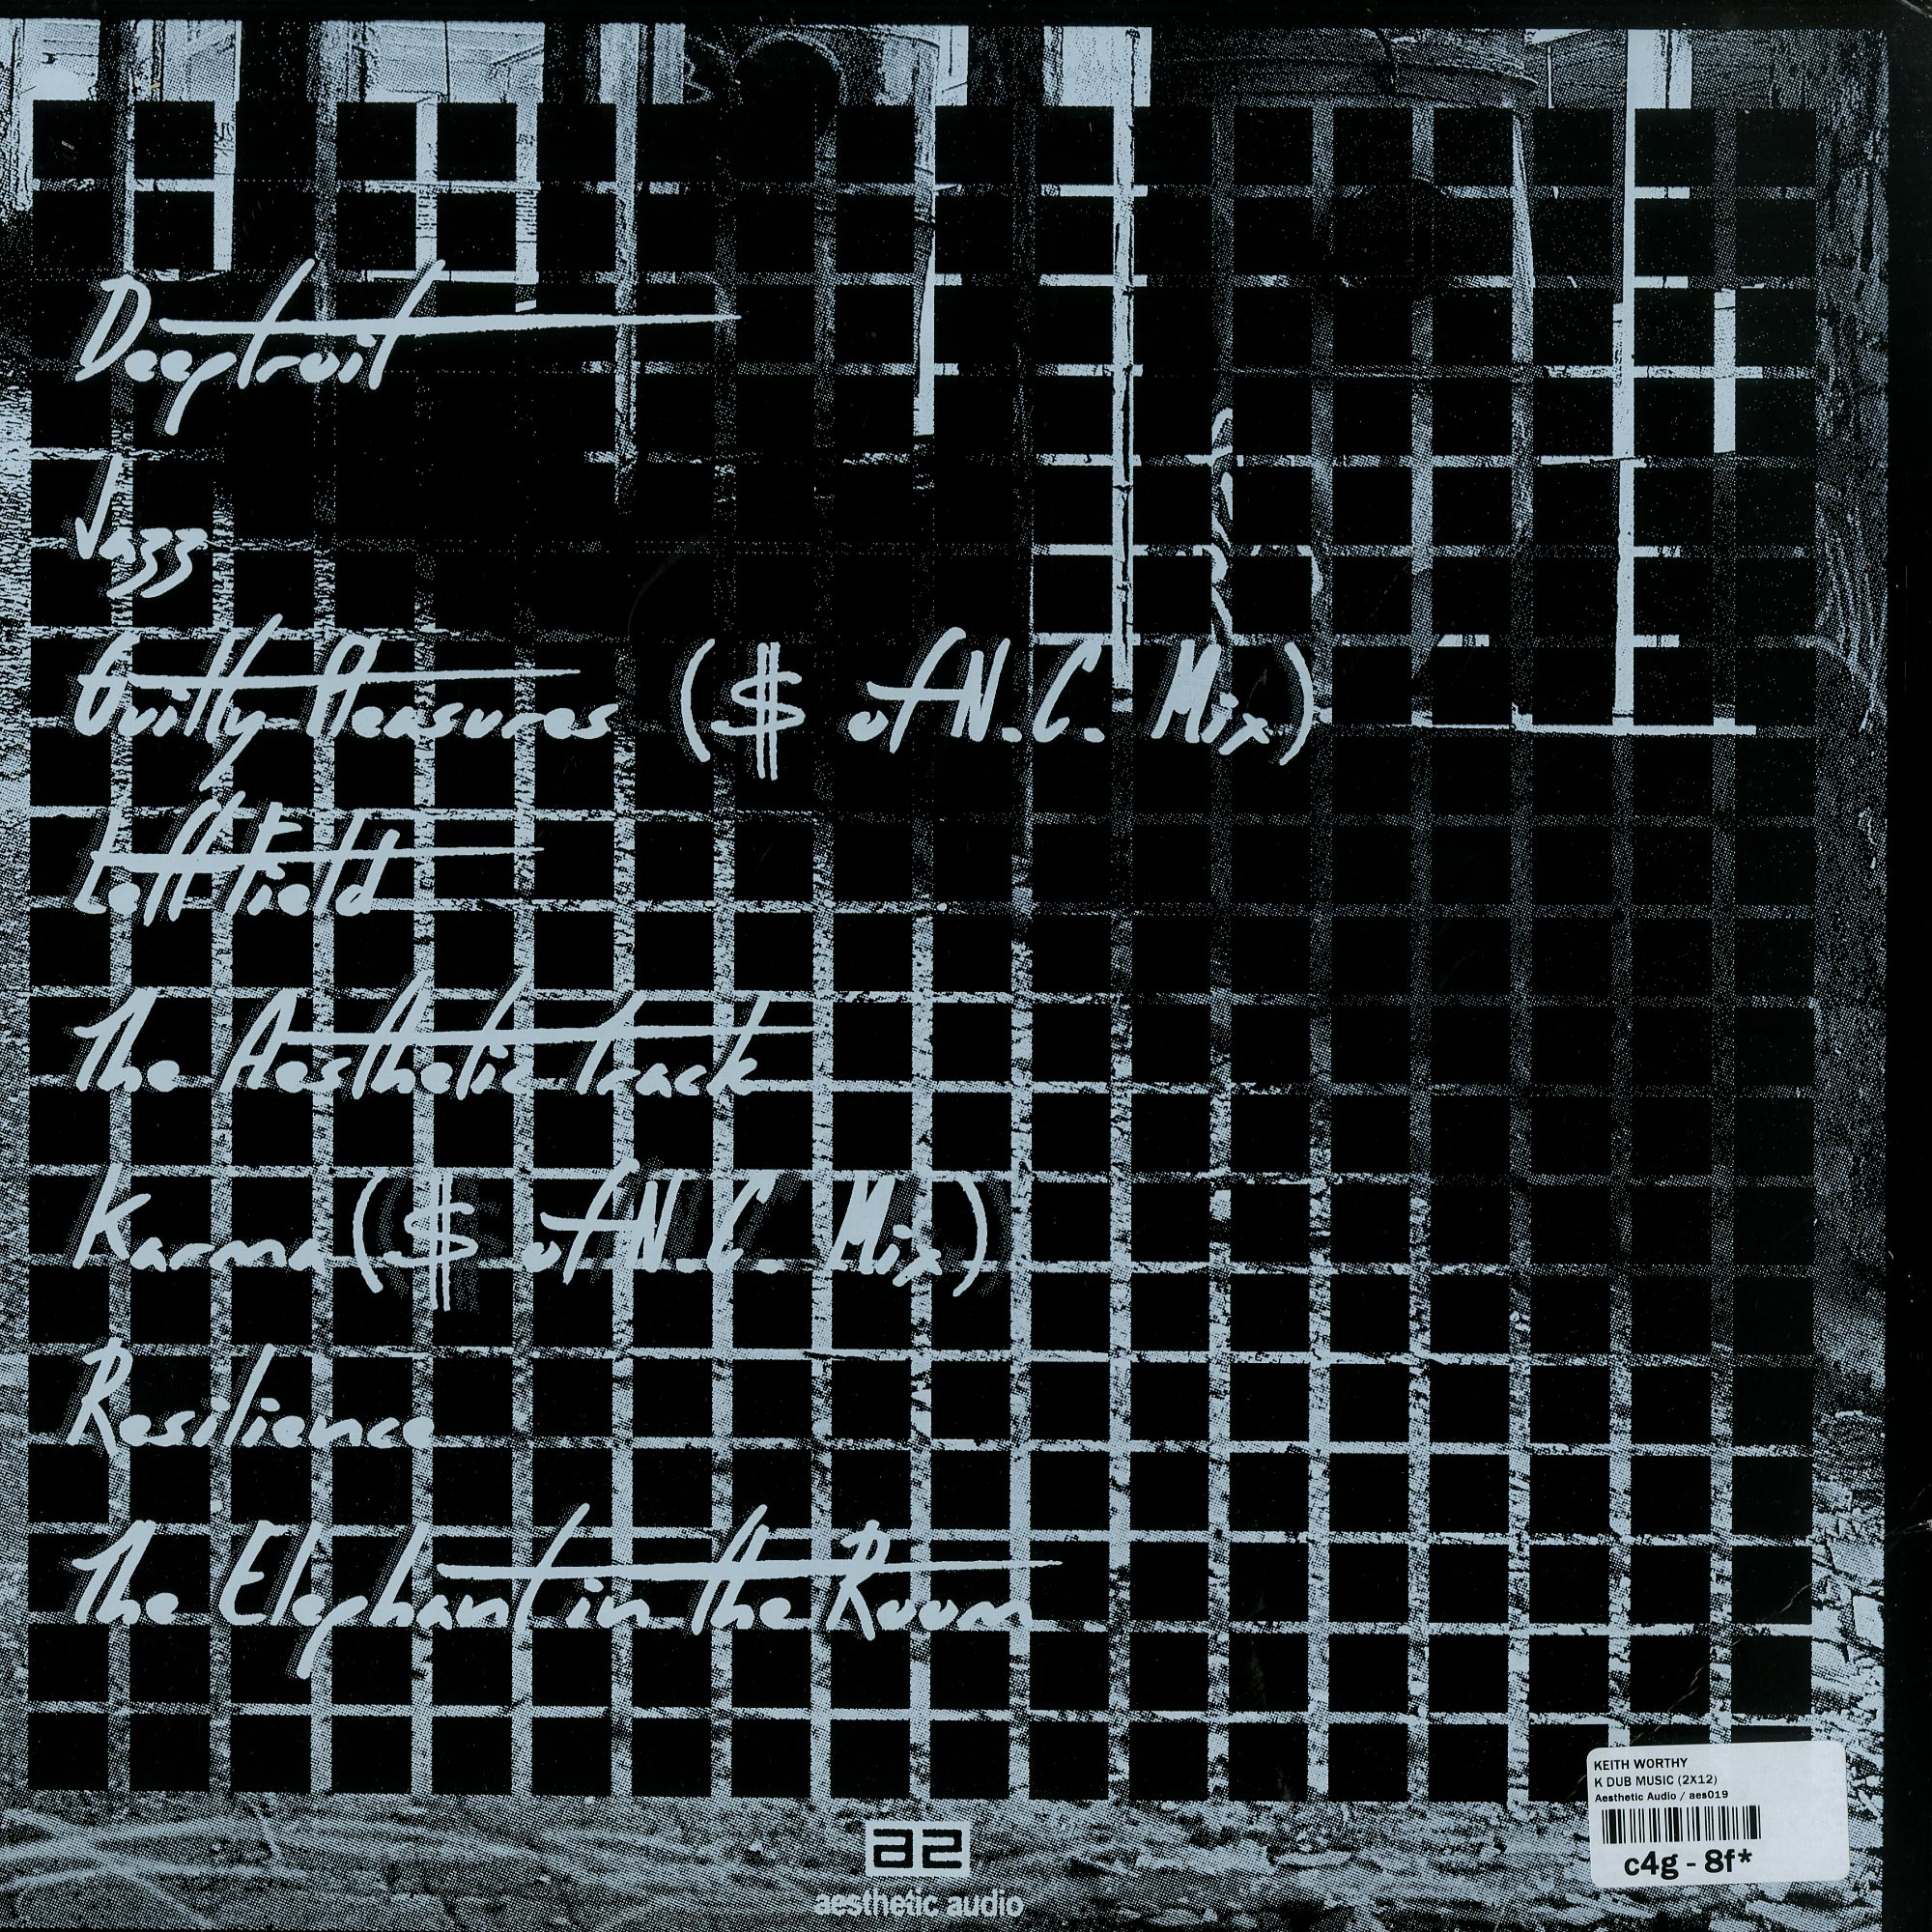 Deeptroit
Jazz
Guilty Pleasures ($ of N.C. Mix)
Left Field
The Aesthetic Track
Karma ($ of N.C. Mix)
Resilience
The Elephant in the Room
KEITH WORTHY
K DUB MUSIC (2X12)
Aesthetic Audio / aes019
c4g - 8f*
ae
aesthetic audio